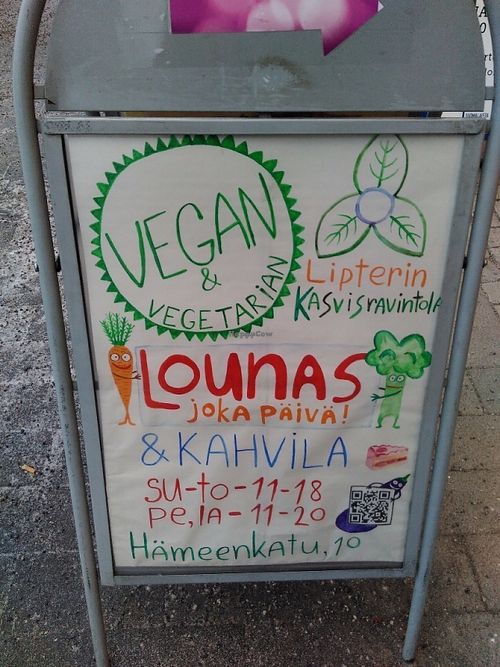 VEGAN
&
VEGETARIAN
Lipterin
KASVISRAVINTOLA
LOUNAS
JOKA PÄIVÄ!
& KAHVILA
SU-TO-11-18
PE, LA-11-20
Hämeenkatu, 10
HappyCow